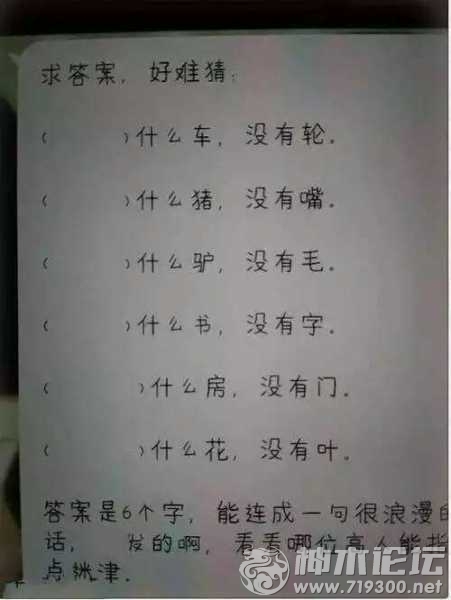 求答案，好难猜：
（ ）什么车，没有轮。
（ ）什么猪，没有嘴。
（ ）什么驴，没有毛。
（ ）什么书，没有字。
（ ）什么房，没有门。
（ ）什么花，没有叶。
答案是6个字，能连成一句很浪漫的
话， 发的啊，看看哪位高人能指
点 津.
神木论坛
www.719300.net